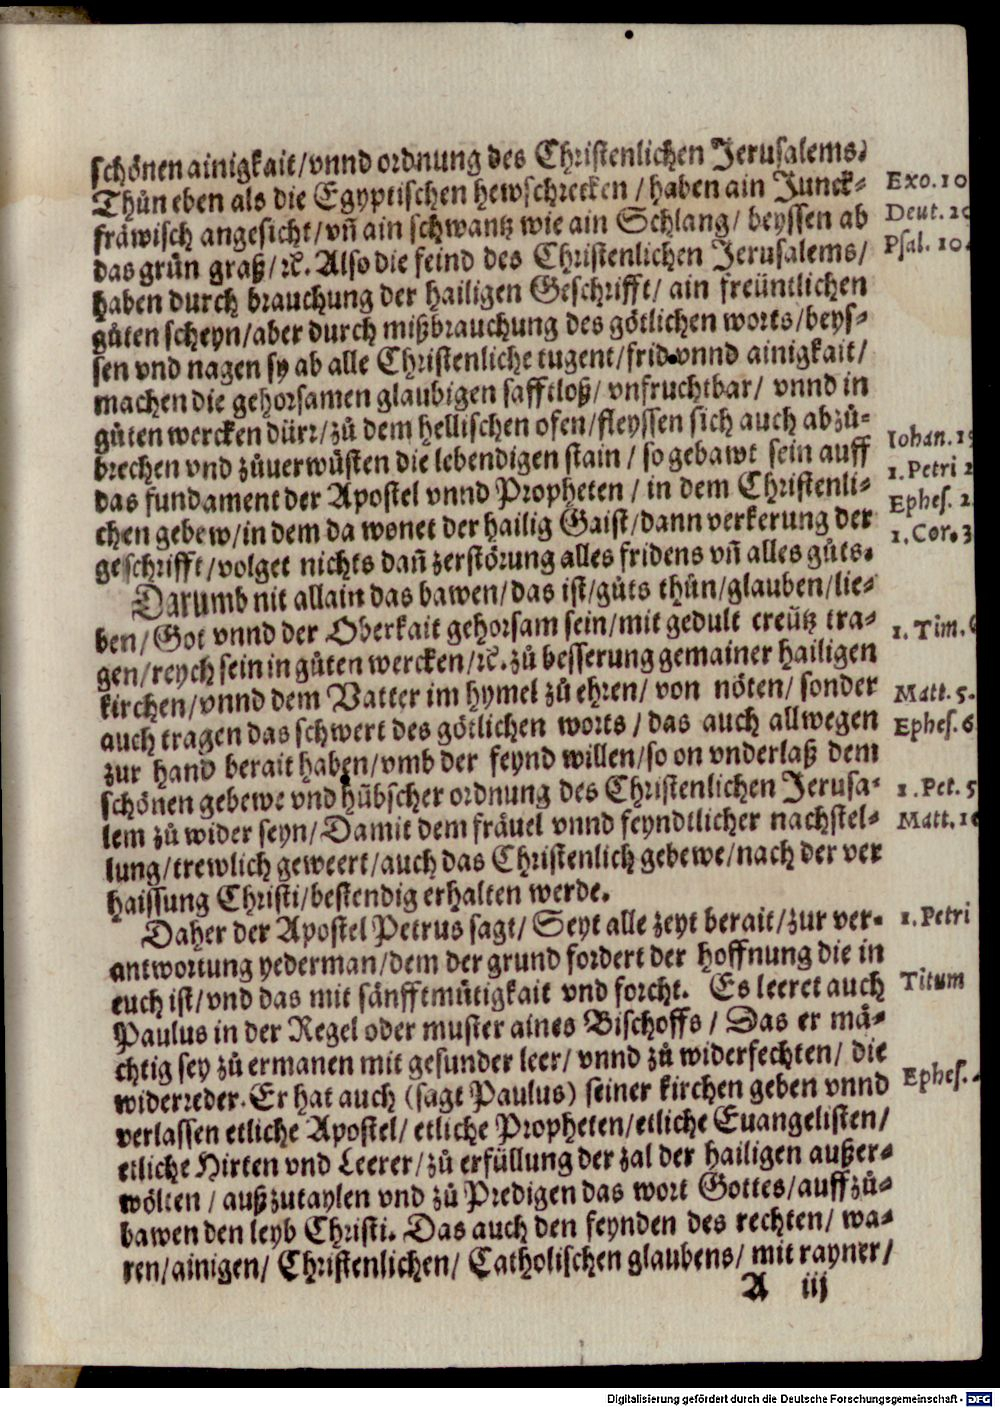 schönen ainigkait/vnnd ordnung des Christenlichen Jerusalems.
Thůn eben als die Egyptischen hewschrecken/haben ain Junck-
fräwisch angesicht/vñ ain schwantz wie ain Schlang/beyssen ab
das grün graß/ꝛc. Also die feind des Christenlichen Jerusalems/
haben durch brauchung der hailigen Geschrifft/ain freüntlichen
gůten scheyn/aber durch mißbrauchung des götlichen worts/beys-
sen vnd nagen sy ab alle Christenliche tugent/frid vnnd ainigkait/
machen die gehorsamen glaubigen safftloß/vnfruchtbar/vnnd in
gůten wercken dürr/zů dem hellischen ofen/fleyssen sich auch abzů-
brechen vnd zůuerwůsten die lebendigen stain/so gebawt sein auff
das fundament der Apostel vnnd Propheten/in dem Christenli-
chen gebew/in dem da wonet der hailig Gaist/dann verkerung der
geschrifft/volget nichts dañ zerstörung alles fridens vñ alles gůts.
Darumb nit allain das bawen/das ist/gůts thůn/glauben/lie-
ben/Got vnnd der Oberkait gehorsam sein/mit gedult creütz tra-
gen/reych sein in gůten wercken/ꝛc. zů besserung gemainer hailigen
kirchen/vnnd dem Vatter im hymel zů ehren/von nöten/sonder
auch tragen das schwert des götlichen worts/das auch allwegen
zur hand berait haben/vmb der feynd willen/so on vnderlaß dem
schönen gebewe vnd hübscher ordnung des Christenlichen Jerusa-
lem zů wider seyn/Damit dem fräuel vnnd feyndtlicher nachstel-
lung/trewlich geweert/auch das Christenlich gebewe/nach der ver
haissung Christi/bestendig erhalten werde.
Daher der Apostel Petrus sagt/Seyt alle zeyt berait/zur ver-
antwortung yederman/dem der grund fordert der hoffnung die in
euch ist/vnd das mit sänfftmůtigkait vnd forcht. Es leeret auch
Paulus in der Regel oder muster aines Bischoffs/Das er mä-
chtig sey zů ermanen mit gesunder leer/vnnd zů widerfechten/die
widerreder. Er hat auch (sagt Paulus) seiner kirchen geben vnnd
verlassen etliche Apostel/etliche Propheten/etliche Euangelisten/
etliche Hirten vnd Leerer/zů erfüllung der zal der hailigen außer-
wölten/außzutaylen vnd zů Predigen das wort Gottes/auffzů-
bawen den leyb Christi. Das auch den feynden des rechten/wa-
ren/ainigen/Christenlichen/Catholischen glaubens/mit rayner/
A iij
Exo. 10
Deut.
Psal.
Iohan.
1. Petri 2
Ephes. 2
1. Cor. 3
1. Tim.
Matt. 5.
Ephes. 6
1. Pet. 5
Matt.
1. Petri
Titum
Ephes.
Digitalisierung gefördert durch die Deutsche Forschungsgemeinschaft - DFG